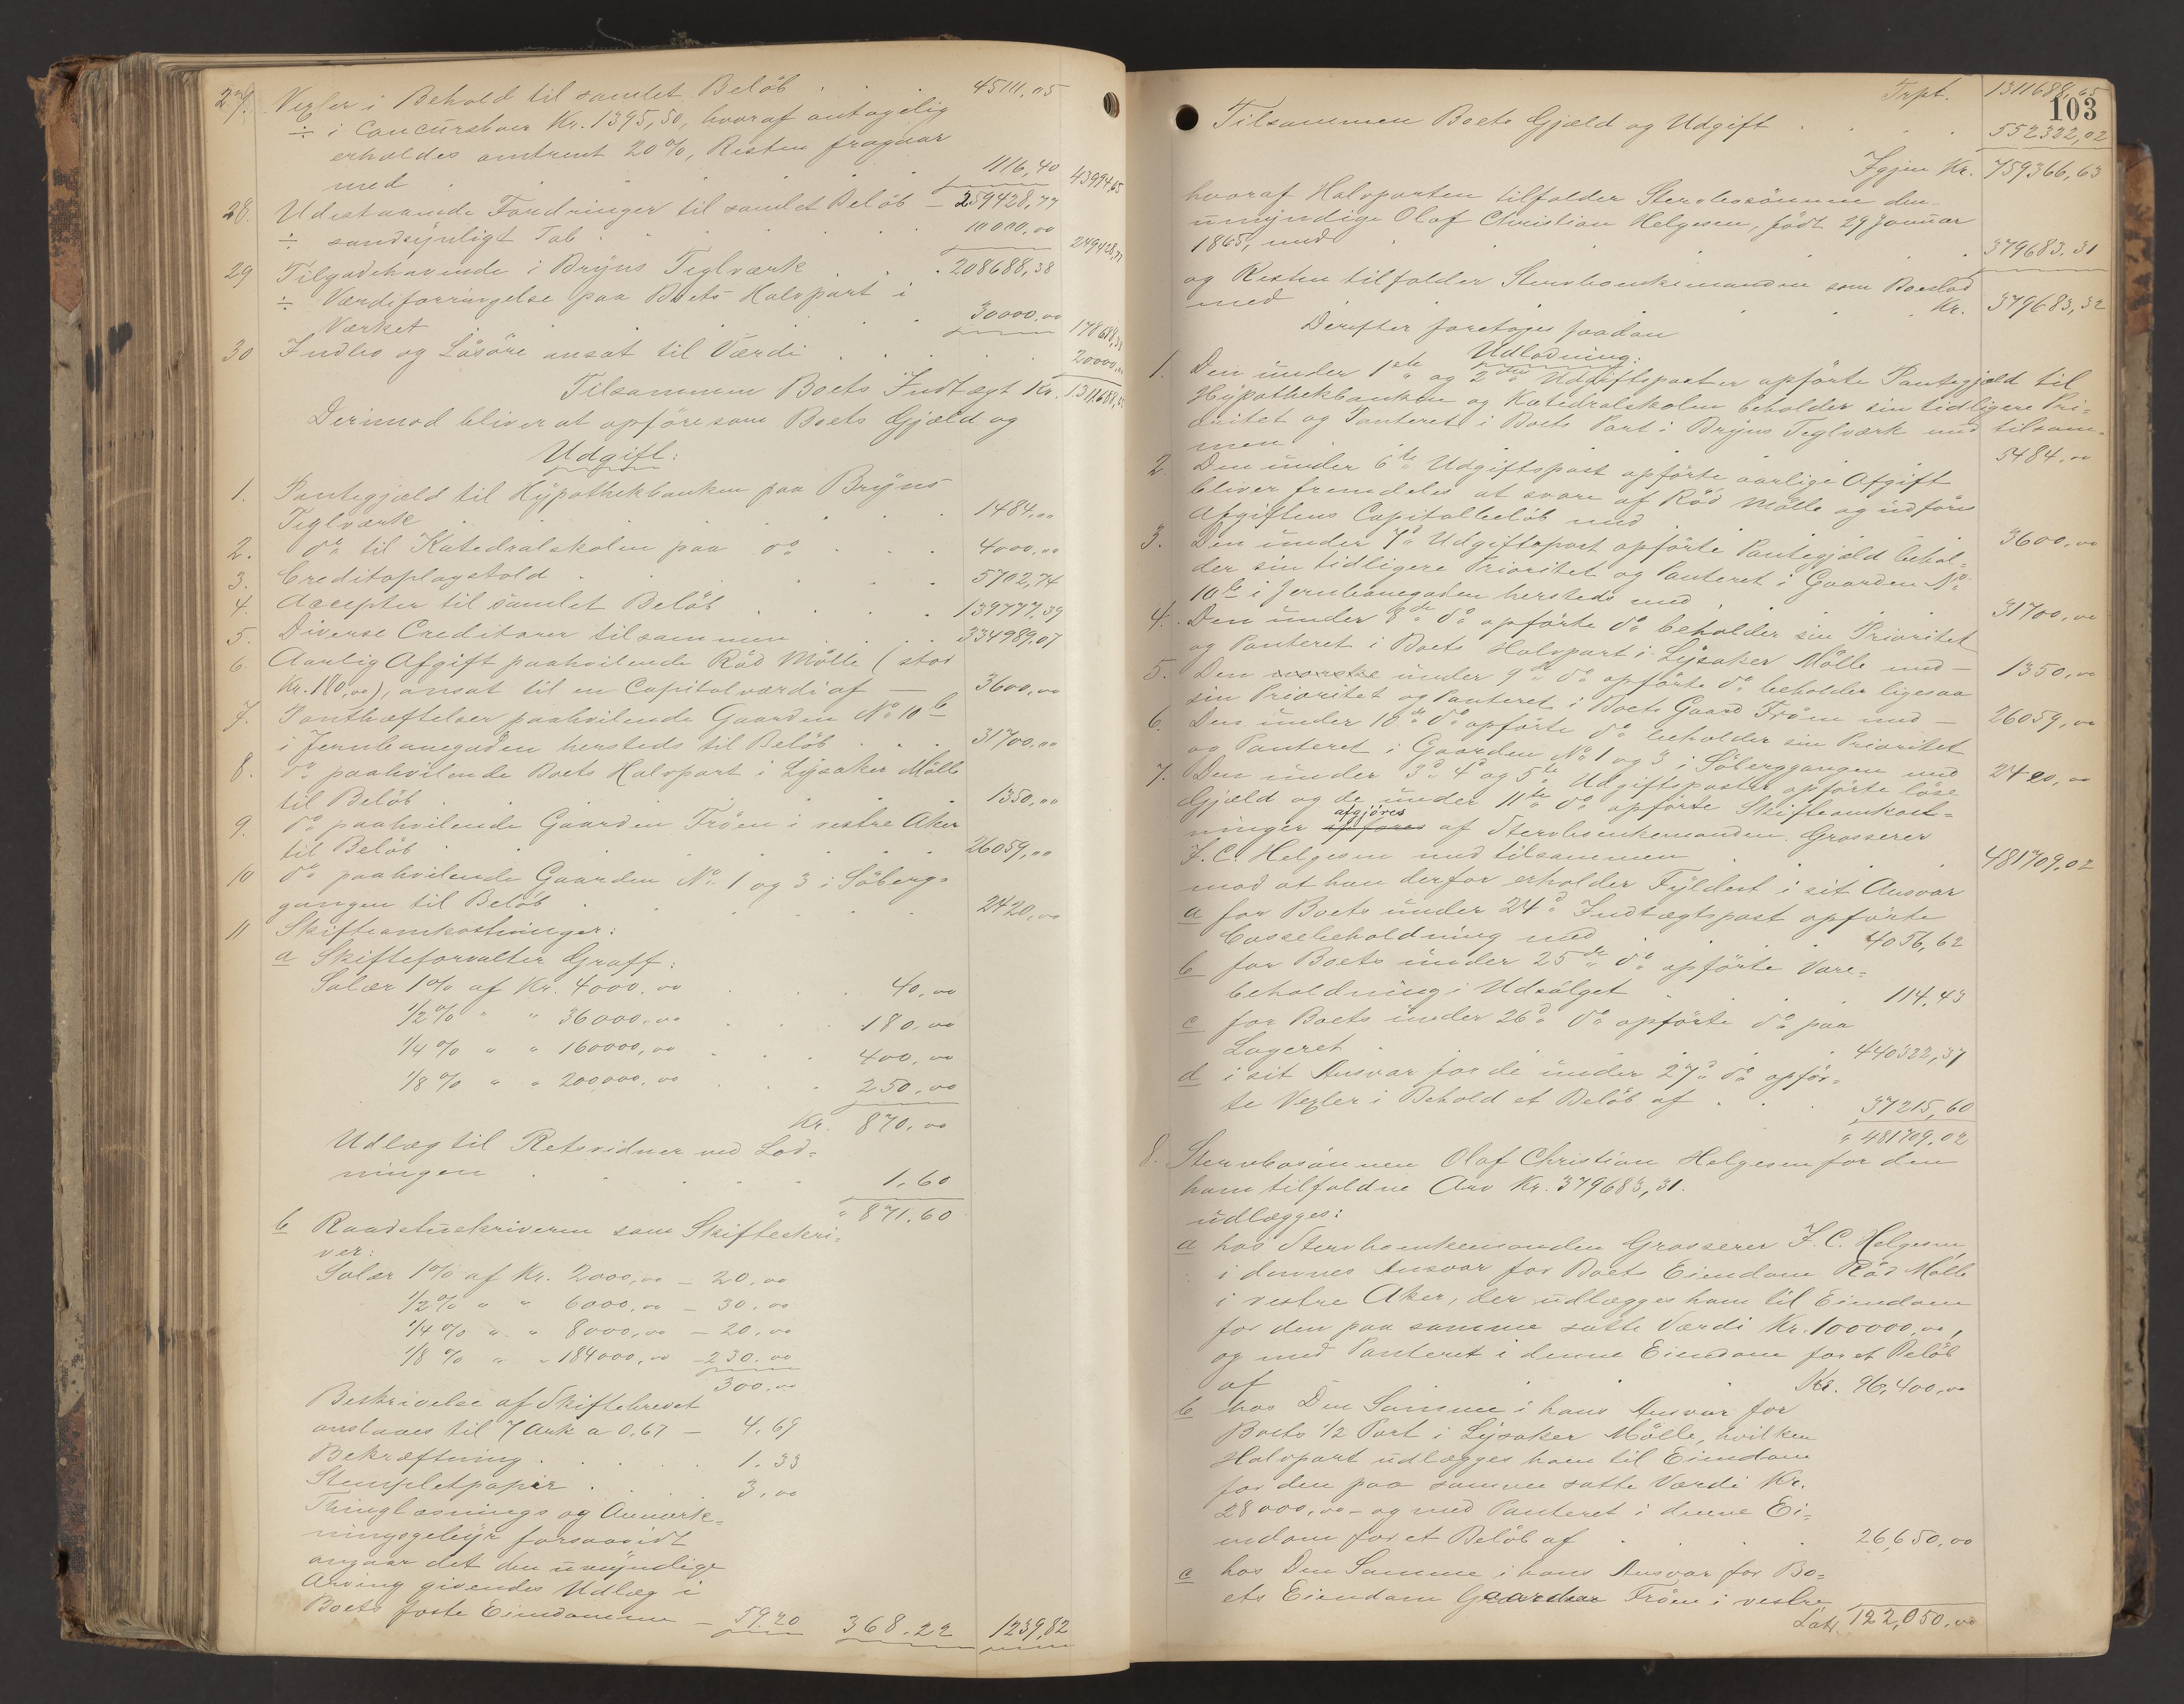 27. Vexler i Behold til samlet Beløb . . . 45111,05
÷ i Concursboer Kr. 1395,50, hvoraf antagelig
erholdes omtrent 20%, Resten fragaar
med . . . . . . 1116,40 43994,65
28. Udestaaende Fordringer til samlet Beløb – 259428,77
÷ sandsynligt Tab . . . . . 10000,00 249428,77
29 Tilgodehavende i Bryns Teglværk . . . 208688,38
÷ Værdiforringelse paa Boets Halvpart i
Værket . . . . . . 30000,00 178688,38
30 Indbo og Løsøre ansat til Værdi . . . . . 20000,00
Tilsammen Boets Indtægt Kr. 1311688,65
Derimod bliver at opføre som Boets Gjæld og
Udgift:
1. Pantegjæld til Hypothekbanken paa Bryns
Teglværk . . . . . . 1484,00
2. do til Katedralskolen paa do . . . 4000,00
3. Creditoplagstold . . . . . 5702,74
4. Accepter til samlet Beløb . . . . 139777,39
5. Diverse Creditorer tilsammen . . . . 334989,07
6. Aarlig Afgift paahvilende Rød Mølle (stor
Kr. 180,00), ansat til en Capitalværdi af — 3600,00
7. Panthæftelser paahvilende Gaarden No 10b
i Jernbanegaden hersteds til Beløb . . . 31700,00
8. do paahvilende Boets Halvpart i Lysaker Mølle
til Beløb . . . . . . 1350,00
9. do paahvilende Gaarden Frøen i vestre Aker
til Beløb . . . . . . 26059,00
10 do paahvilende Gaarden No 1 og 3 i Søberg=
gangen til Beløb . . . . . 2420,00
11 Skifteomkostninger:
a Skifteforvalter Graff:
Salær 1% af Kr. 4000,00 . . . 40,00
1/2% " " 36000,00 . . . 180,00
1/4% " " 160000,00 . . . 400,00
1/8% " " 200000,00 . . . 250,00
Kr. 870,00
Udlæg til Retsvidner ved Lod=
ningen . . . . . 1,60
" 871,60
b Raadstueskriveren som Skifteskri=
ver:
Salær 1% af Kr. 2000,00 – 20,00
1/2% " " 6000,00 – 30,00
1/4% " " 8000,00 – 20,00
1/8% " " 184000,00 – 230,00
300,00
Beskrivelse af Skiftebrevet
anslaaes til 7 Ark a 0,67 – 4,69
Bekræftning . . . . 1,33
Stempletpapir . . . . 3,00
Thinglæsnings og Anmærk=
ningsgebyr forsaavidt
angaar det den umyndige
Arving givendes Udlæg i
Boets faste Eiendomme – 59.20 368.22 1239,82
103
Trpt. 1311688,65
Tilsammen Boets Gjæld og Udgift . . . . 552322,02
Igjen Kr. 759366,63
hvoraf Halvparten tilfalder Stervbosønnen den
umyndige Olaf Christian Helgesen, født 29 Januar
1865, med . . . . . . 379683,31
og Resten tilfalder Stervboenkemanden som Boeslod
med . . . . . . Kr. 379683,32
Derefter foretoges saadan
Udlodning:
1. Den under 1ste og 2den Udgiftspost er opførte Pantegjæld til
Hypothekbanken og Katedralskolen beholder sin tidligere Pri=
oritet og Panteret i Boets Part i Bryns Teglværk med tilsam=
men . . . . . . 5484,00
2. Den under 6te Udgiftspost opførte aarlige Afgift
bliver fremdeles at svare af Rød Mølle og udføres
Afgiftens Capitalbeløb med . . . . . 3600,00
3. Den under 7de Udgiftspost opførte Pantegjæld behol=
der sin tidligere Prioritet og Panteret i Gaarden No
10b i Jernbanegaden hersteds med . . . . 31700,00
4. Den under 8de do opførte do beholder sin Prioritet
og Panteret i Boets Halvpart i Lysaker Mølle med – 1350,00
5. Den under 9de do opførte do beholder ligesaa
sin Prioritet og Panteret i Boets Gaard Frøen med – 26059,00
6. Den under 10de do opførte do beholder sin Prioritet
og Panteret i Gaarden No 1 og 3 i Søberggangen med 2420,00
7. Den under 3d 4d og 5te Udgiftsposter opførte løse
Gjæld og de under 11te do opførte Skifteomkost=
afgjøres
ninger opføres af Stervboenkemanden Grosserer
F. C. Helgesen med tilsammen . . . . 481709,02
mod at han derfor erholder Fyldest i sit Ansvar
a for Boets under 24d Indtægtspost opførte
Cassebeholdning med . . . 4056,62
b for Boets under 25de do opførte Vare=
beholdning i Udsalget . . . . 114,43
c for Boets under 26d do opførte do paa
Lageret . . . . . 440322,37
d i sit Ansvar for de under 27d do opfør=
te Vexler i Behold et Beløb af . . . 37215,60
" 481709,02
8. Stervbosønnen Olaf Christian Helgesen for den
ham tilfaldne Arv Kr. 379683,31.
udlægges:
a hos Stervboenkemanden Grosserer F. C. Helgesen
i dennes Ansvar for Boets Eiendom Rød Mølle
i vestre Aker, der udlægges ham til Eiendom
for den paa samme satte Værdi Kr. 100000,00,
og med Panteret i denne Eiendom for et Beløb
af . . . . . Kr. 96,400,00
b hos Den Samme i hans Ansvar for
Boets 1/2 Part i Lysaker Mølle, hvilken
Halvpart udlægges ham til Eiendom
for den paa samme satte Værdi Kr.
28000,00 – og med Panteret i denne Ei=
endom for et Beløb af . . . . 26,650,00
c hos Den Samme i hans Ansvar for Bo=
ets Eiendom Gaarden Frøen i vestre
Lat. 122,050,00